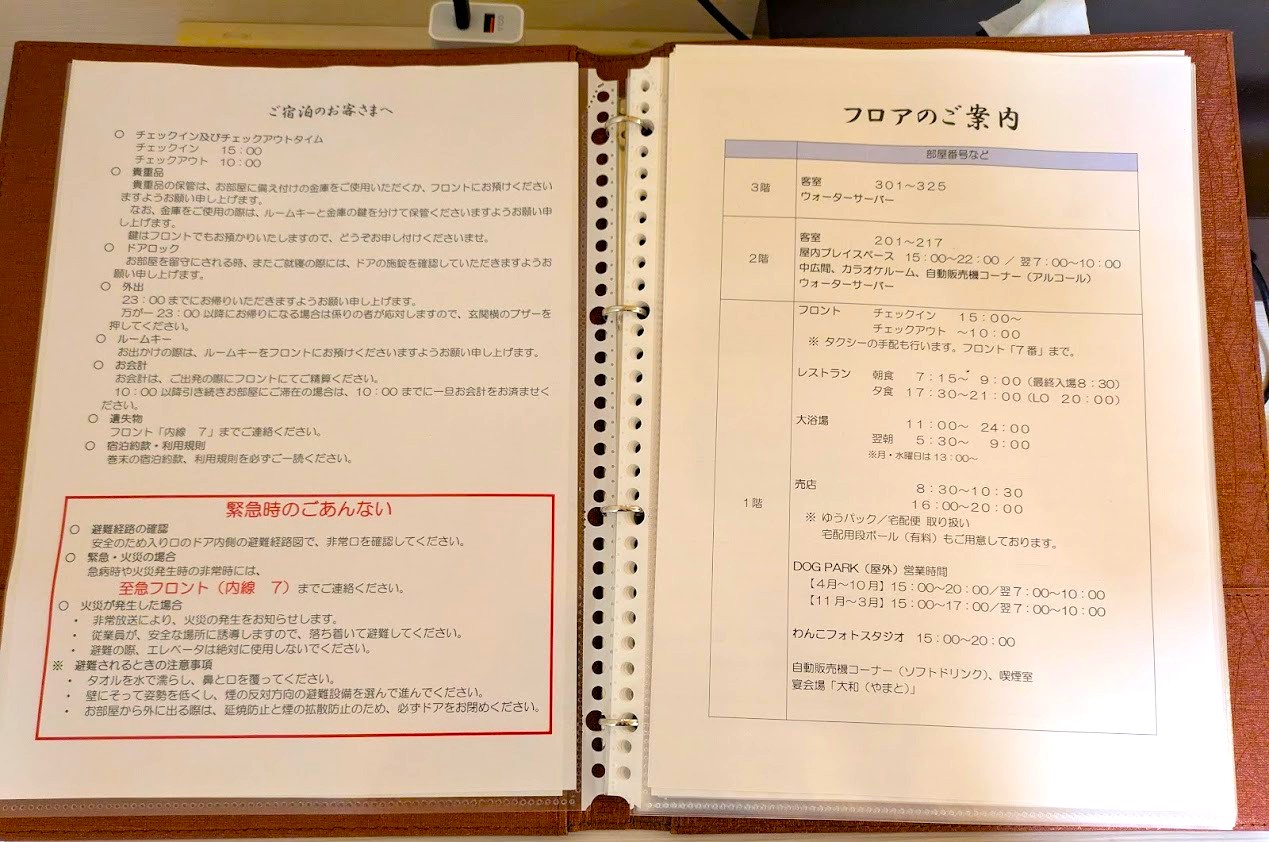 ご宿泊のお客さまへ
〇 チェックイン及びチェックアウトタイム
チェックイン 15:00
チェックアウト 10:00
〇 貴重品
貴重品の保管は、お部屋に備え付けの金庫をご使用いただくか、フロントにお預けください
ますようお願い申し上げます。
なお、金庫をご使用の際は、ルームキーと金庫の鍵を分けて保管くださいますようお願い申
し上げます。
鍵はフロントでもお預かりいたしますので、どうぞお申し付けくださいませ。
〇 ドアロック
お部屋を留守にされる時、またご就寝の際には、ドアの施錠を確認していただきますようお
願い申し上げます。
〇 外出
23:00 までにお帰りいただきますようお願い申し上げます。
万が一 23:00 以降にお帰りになる場合は係りの者が応対しますので、玄関横のブザーを
押してください。
〇 ルームキー
お出かけの際は、ルームキーをフロントにお預けくださいますようお願い申し上げます。
〇 お会計
お会計は、ご出発の際にフロントにてご精算ください。
10:00 以降引き続きお部屋にご滞在の場合は、10:00 までに一旦お会計をお済ませく
ださい。
〇 遺失物
フロント「内線 7」までご連絡ください。
〇 宿泊約款・利用規則
巻末の宿泊約款、利用規則を必ずご一読ください。
緊急時のごあんない
〇 避難経路の確認
安全のため入り口のドア内側の避難経路図で、非常口を確認してください。
〇 緊急・火災の場合
急病時や火災発生時の非常時には、
至急フロント（内線 7）までご連絡ください。
〇 火災が発生した場合
・ 非常放送により、火災の発生をお知らせします。
・ 従業員が、安全な場所に誘導しますので、落ち着いて避難してください。
・ 避難の際、エレベータは絶対に使用しないでください。
※ 避難されるときの注意事項
・ タオルを水で濡らし、鼻と口を覆ってください。
・ 壁にそって姿勢を低くし、煙の反対方向の避難設備を選んで進んでください。
・ お部屋から外に出る際は、延焼防止と煙の拡散防止のため、必ずドアをお閉めください。
フロアのご案内
部屋番号など
3階
客室 301～325
ウォーターサーバー
2階
客室 201～217
屋内プレイスペース 15:00～22:00 / 翌7:00～10:00
中広間、カラオケルーム、自動販売機コーナー（アルコール）
ウォーターサーバー
1階
フロント チェックイン 15:00～
チェックアウト ～10:00
※ タクシーの手配も行います。フロント「7番」まで。
レストラン 朝食 7:15～ 9:00（最終入場8:30）
夕食 17:30～21:00（LO 20:00）
大浴場 11:00～ 24:00
翌朝 5:30～ 9:00
※月・水曜日は 13:00～
売店 8:30～10:30
16:00～20:00
※ ゆうパック／宅配便 取り扱い
宅配用段ボール（有料）もご用意しております。
DOG PARK（屋外）営業時間
【4月～10月】15:00～20:00/翌7:00～10:00
【11月～3月】15:00～17:00/翌7:00～10:00
わんこフォトスタジオ 15:00～20:00
自動販売機コーナー（ソフトドリンク）、喫煙室
宴会場「大和（やまと）」